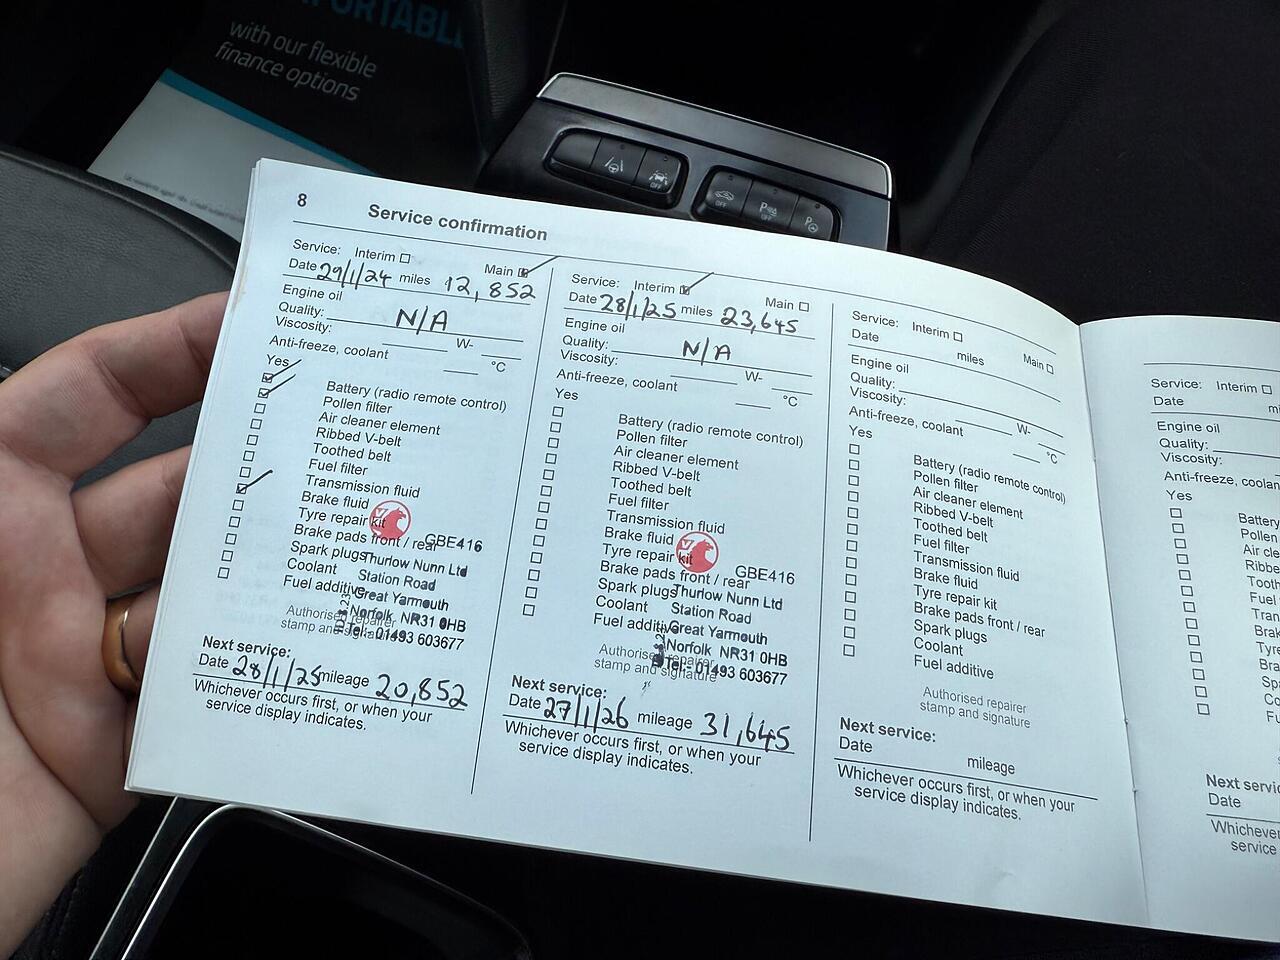 ORTABLE
with our flexible
finance options
OFF
OFF
8
Service confirmation
Service: Interim Main
Date 29/1/24 miles 12,852
Engine oil
Quality: N/A
Viscosity: W-
Anti-freeze, coolant °C
Yes
Battery (radio remote control)
Pollen filter
Air cleaner element
Ribbed V-belt
Toothed belt
Fuel filter
Transmission fluid
Brake fluid
Tyre repair kit
Brake pads front / rear
Spark plugs
Coolant
Fuel additive
GBE416
Thurlow Nunn Ltd
Station Road
Great Yarmouth
Norfolk NR31 0HB
Tel:- 01493 603677
Authorised repairer
stamp and signature
Next service:
Date 28/1/25 mileage 20,852
Whichever occurs first, or when your
service display indicates.
Service: Interim Main
Date 28/1/25 miles 23,645
Engine oil
Quality: N/A
Viscosity: W-
Anti-freeze, coolant °C
Yes
Battery (radio remote control)
Pollen filter
Air cleaner element
Ribbed V-belt
Toothed belt
Fuel filter
Transmission fluid
Brake fluid
Tyre repair kit
Brake pads front / rear
Spark plugs
Coolant
Fuel additive
GBE416
Thurlow Nunn Ltd
Station Road
Great Yarmouth
Norfolk NR31 0HB
Tel:- 01493 603677
Authorised repairer
stamp and signature
Next service:
Date 27/1/26 mileage 31,645
Whichever occurs first, or when your
service display indicates.
Service: Interim Main
Date miles
Engine oil
Quality:
Viscosity: W-
Anti-freeze, coolant °C
Yes
Battery (radio remote control)
Pollen filter
Air cleaner element
Ribbed V-belt
Toothed belt
Fuel filter
Transmission fluid
Brake fluid
Tyre repair kit
Brake pads front / rear
Spark plugs
Coolant
Fuel additive
Authorised repairer
stamp and signature
Next service:
Date mileage
Whichever occurs first, or when your
service display indicates.
Service: Interim
Date mi
Engine oil
Quality:
Viscosity:
Anti-freeze, coolan
Yes
Battery
Pollen
Air cle
Ribbe
Tooth
Fuel
Tran
Brak
Tyre
Bra
Sp
Co
Fu
Next servic
Date
Whichever
service